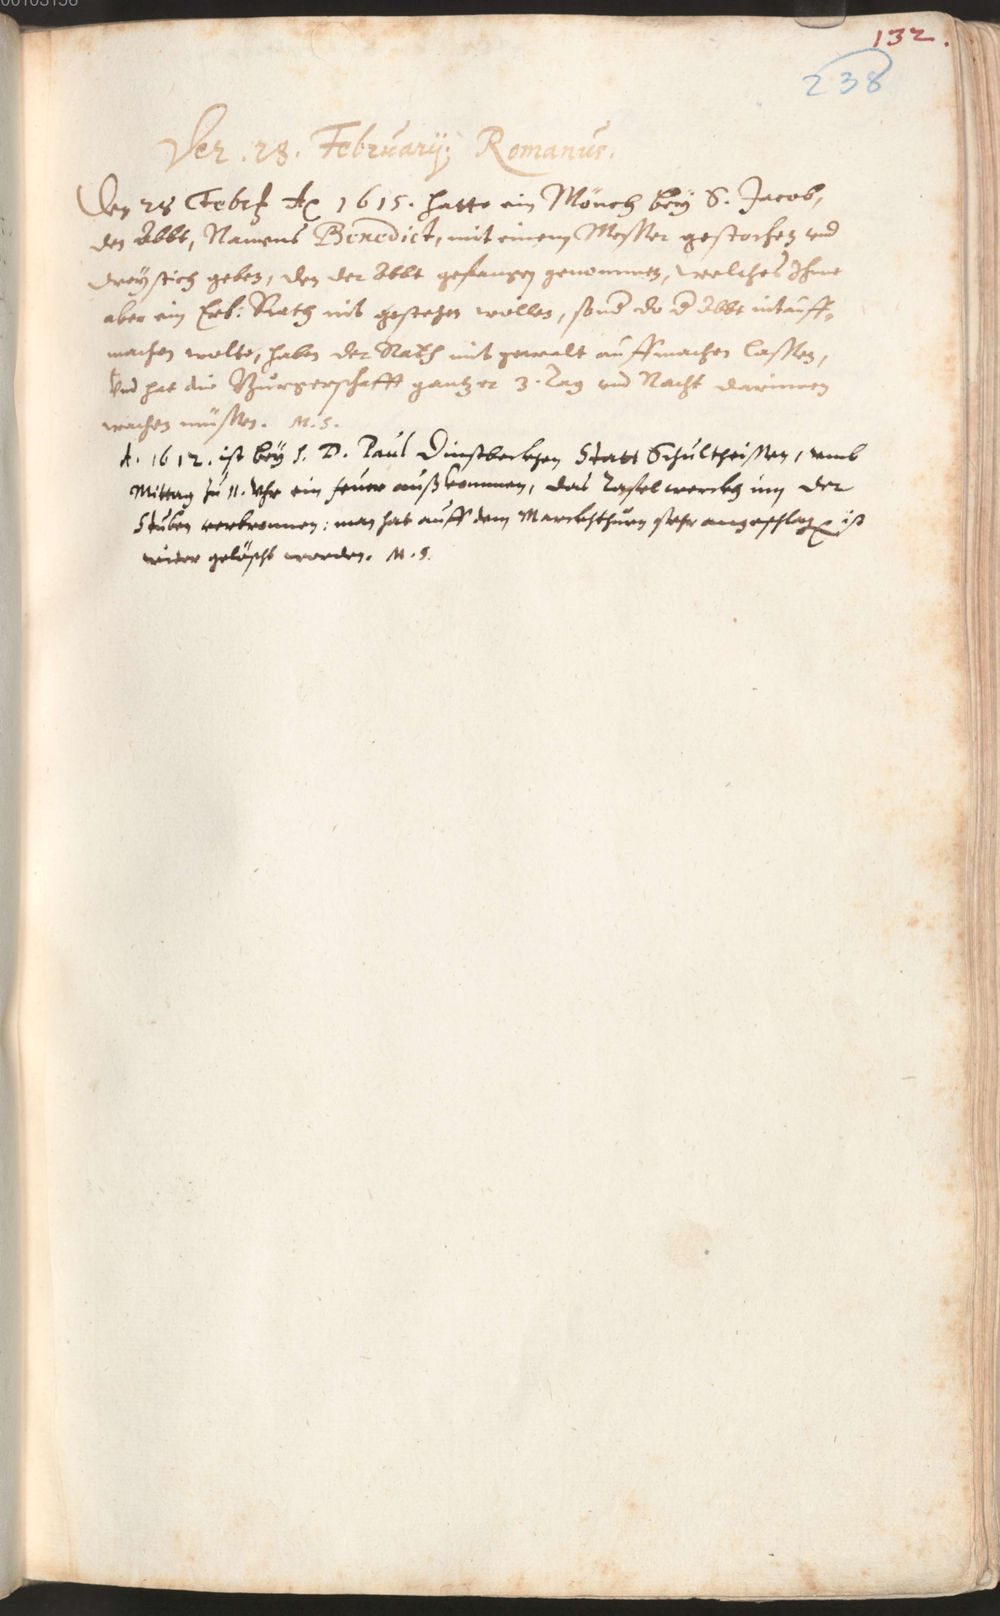 00103156
132.
238
Der .28. Februarij; Romanus.
Den 28 Febr: Ao 1615. hatte ein Mönch beÿ S. Jacob,
den Abbt, Namens Benedict, mit einem Messer gestochen vnd
dreÿ stich geben, den der Abbt gefangen genommen, welches Ihme
aber ein Erb: Rath nit gestehen wollen, sond do d Abbt nit auff-
machen wolte, haben der Rath mit gewalt auffmachen lassen,
Vnd hat die Burgerschafft gantzer 3. Tag vnd Nacht darinnen
wachen müssen. M. S.
A. 1612. ist beÿ H. D. Paul Dinstbeckhen Statt Schultheissen, vmb
Mittag zu 11. Vhr ein feuer außkommen, das Tafelwerckh inn der
Stuben verbronnen: man hat auff dem Marckhthurn sehr angeschlag ist
wider gelöscht worden. M. S.